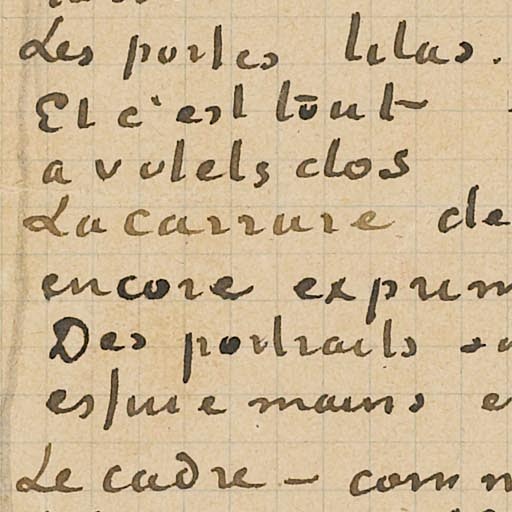 Les portes lilas.
Et c'est tout
a volets clos
La carrure de
encore
Des portraits
mains
Le cadre - comm